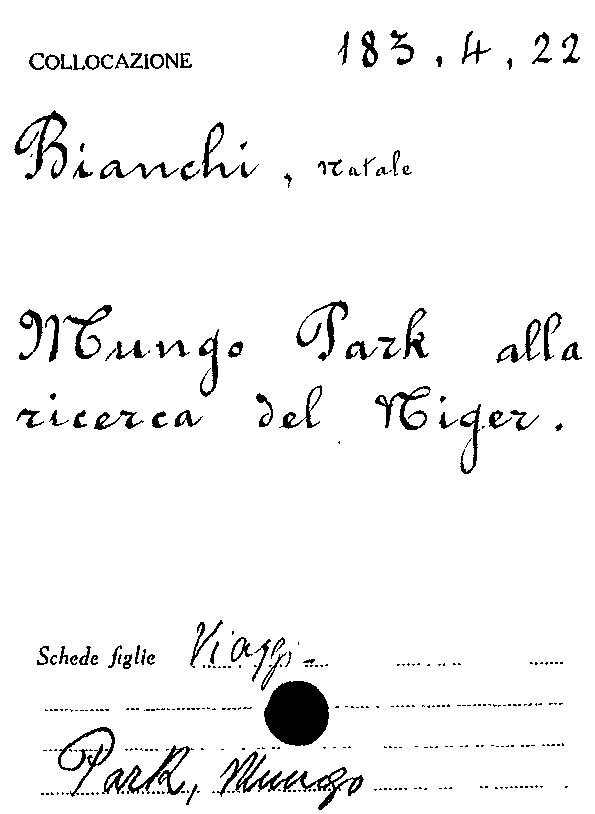 COLLOCAZIONE 183.4.22
Bianchi, Natale
Mungo Park alla
ricerca del Niger.
Schede figlie Viaggi-
Park, Mungo